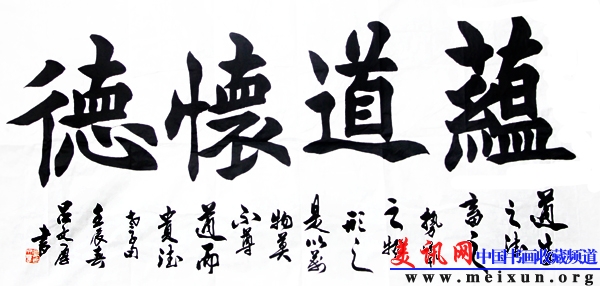 蘊道懷德
道生
之德
畜之
勢成
之物
形之
是以萬
物莫
不尊
道而
貴德
壬辰春
書
美讯网 中国书画收藏频道
www.meixun.org